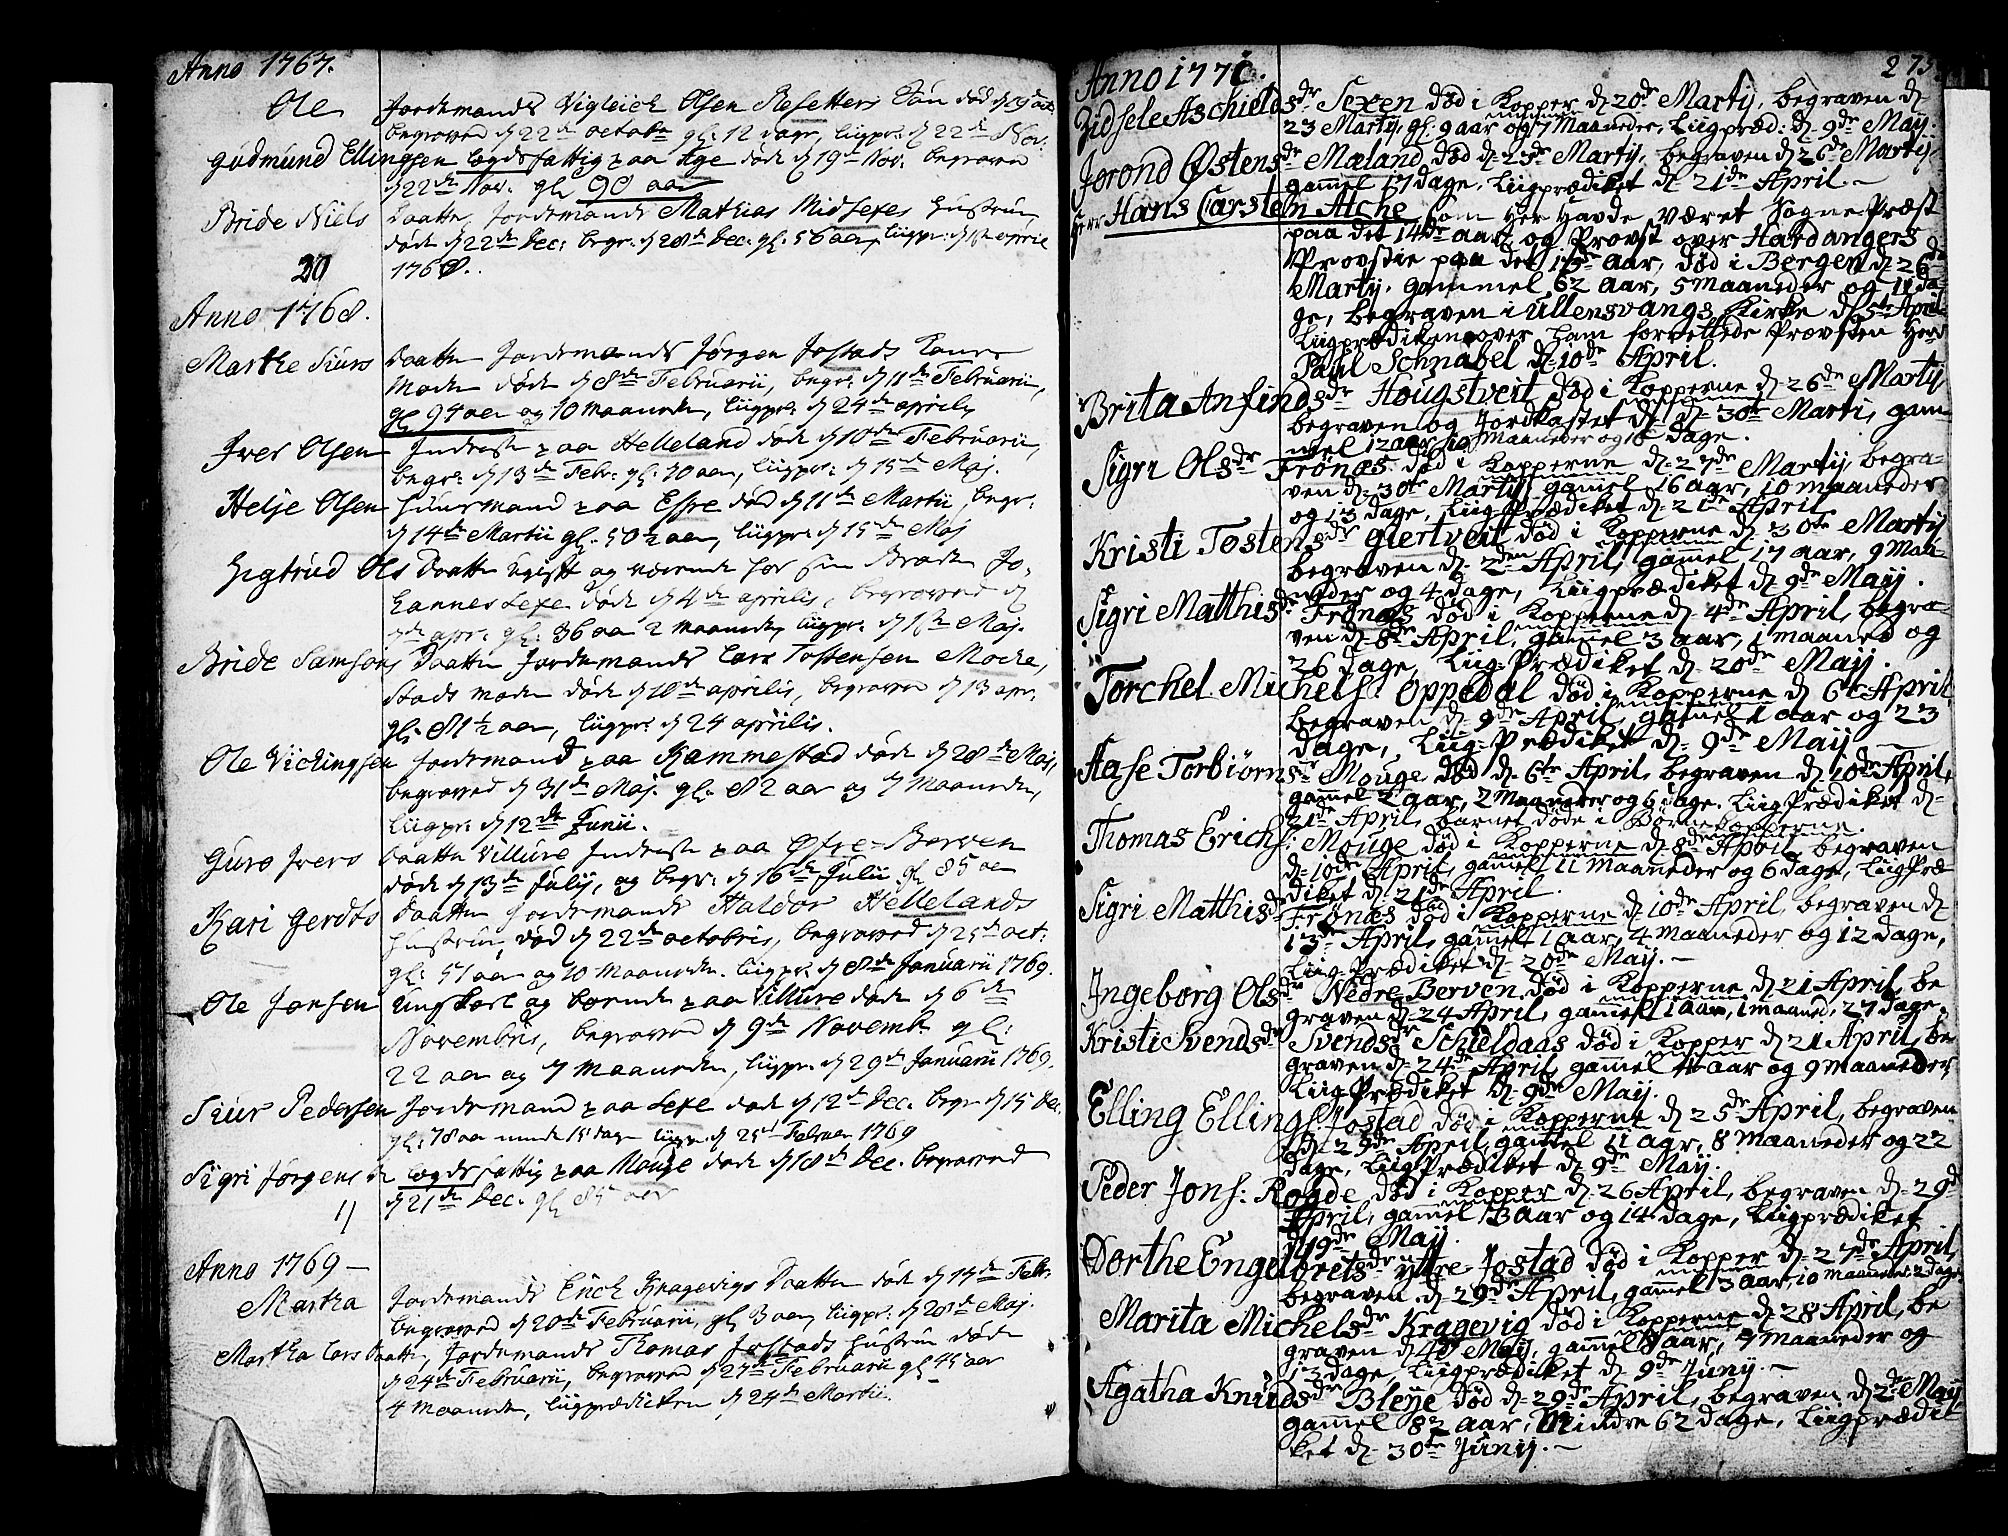 Anno 1767.
Ole Jordemands Vigleich Olsen Resetters Søn død
begraved d 22de octobr gl: 12 dage, liigpr: d 22de Nov:
Gudmund Ellingsen Legdsfattig paa Age døde d 19 Nov. begraven
d 22de Nov. gl 90 aar
Bride Niels Daatter, Jordemands Mathias Midsexes Hustrue
døde d 22de Dec: begr: d 28de Dec: gl: 56 aar, liigpr: d 1ste april
20 1768.
Anno 1768.
Marthe Siurs Daatter Jordemands Jørgen Jostads Kones
Moder døde d 8de Februarii, begr: d 11de Februarii,
gl. 94 aar og 10 Maaneder, liigpr: d 24de aprilis
Iver Olsen Inderste paa Helleland døde d 10de Februarii,
begr: d 13de Febr: gl: 70 aar, liigpr: d 15de Maj.
Helje Olsen Huusmand paa Espe død d 11te Martii, begr:
d 14de Martii gl. 50½ aar, liigpr: d 15de Maj
Sigtrud Ols Daatter Ugift og værende hos sin Broder Jo-
hannes Sexe døde d 4de aprilis, begraved d
7de apr: gl: 36 aar 2 Maaneder, liigpr: d 1ste Maj.
Bride Samsons Daatter Jordemands Lars Tostensen Moche-
stads moder døde d 10de aprilis, begraved d 13 apr:
gl: 81½ aar, liigpr: d 24 aprilis.
Ole Vichingsen Jordemand paa Rammestad døde d 28de Maj,
begraved d 31te Maj. gl: 82 aar og 7 Maaneder,
liigpr: d 12de Junii.
Guro Ivers Daatter Villure Inderste paa Øfre-Berven
døde d 13de Julij, og begr: d 16de Julii gl 85 aar
Kari Gerdts Daatter Jordemands Haldor Hellelands
Hustrue, død d 22de octobris, begraved d 25de oct:
gl: 51 aar og 10 Maaneder. liigpr: d 8de Januarii 1769.
Ole Jonsen Ungkarl og boende paa Villure døde d 6de
Novembris, begraved d 9de Novemb. gl:
22 aar og 7 Maaneder, liigpr: d 29de Januarii 1769.
Siur Pedersen Jordemand paa Sexe døde d 12te Dec. begr. d 15 Dec.
gl: 78 aar minder 15 dage liigpr. d 25de Februar 1769
Sigri Jørgens Legdsfattig paa Mouge døde d 18de Dec. begraved
11 d 21de Dec. gl 85 aar
Anno 1769
Martha Jordemands Erich Kragevigs Daatter døde d 14de Febr:
begraved d 20de Februarii, gl 3 aar, liigpr: d 28de Maj.
Martha Lars Daatter, Jordemands Thomas Jostads Hustrue døde
d 24de Februarii, begraved d 27de Februarii gl: 45 aar
4 Maaneder, liigprædicken d 24de Martii.
Anno 1771. 273
Zidsele Aschieldsdr Sexen død i Kopper d 20de Martij, begraven d
23 Martij, gl: 9 aar og 7 Maaneder, Liigpræd: d 9de Maij.
Jorond Østensdr Mæland død d 23de Martij, begraven d 26de Martij,
gammel 17 dage, Liigprædiket d 21de April.
Herr Hans Carsten Atche som Her Havde Været Sogne-Præst
paa det 14de aar og Provst over Hardangers
Provstie paa det 13de aar, død i Bergen d 26de
Martij. gammel 62 aar, 5 Maaneder og 11 da-
ge, begraven i Ullensvangs Kirke d 5te April
Liigprædikenen over ham forrettede Provsten Herr
Paul Schnabel d 10de April.
Brita Anfindsdr Hougstveit død i Kopperne d 26de Martij
begraven og Jordkastet d 30te Marti, gam-
mel 12 aar 10 Maaneder og 16 dage.
Sigri Olsdr Frønæs død i Kopperne d 27de Martij begra-
ven d 30te Martij gamel 16 aar, 10 maaneder
og 13 dage, Liig-Prædiket d 21de April
Kristi Tostensdr Giertveit død i Kopperne d 30te Martij
begraven d 2den April, gamel 17 aar, 9 Maa-
neder og 4 dage, Liigprædiket d 9de Maij.
Sigri Matthisdr Frønæs død i Kopperne d 4de April, begra-
ven d 8de April, gamel 3 aar, 1 maaned og
26 dage, Liig-Prædiket d 20de Maij.
Torchel Michels: Oppedal død i Kopperne d 6te April
begraven d 9de April, gamel 1 aar og 23
dage, Liig-Prædiket d 9de Maij
Aase Torbiørnsdr Mouge død d 6te April, begraven d 10de April,
gamel 2 aar, 2 Maaneder og 6 dage. Liig Prædiket d
21de April, barnet døde i Børnekopperne.
Thomas Erichs: Mouge død i Kopperne d 8de April begraven
d 10de April, gamel 11 Maaneder og 6 dage, Liig Præ-
diket d 21de April.
Sigri Matthisdr Frønæs død i Kopperne d 10de April, begraven d
13de April, gamel 1 aar, 4 maaneder og 12 dage,
Liig-Prædiket d 20de Maij.
Ingeborg Olsdr Nedre Berven død i Kopperne d 21 April, be
graven d 24 April, gamel 1 aar, 1 maaned, 27 dage
Kristi Svendsdr Svendsdr Schieldaas død i Kopper d 21 April, be
graven d 24de April, gamel 4 aar og 9 maaneder
Liig Prædiket d 9de Maij.
Elling Ellings: Jostad død i Kopperne d 25de April, begraven
d 29de April, gamel 11 aar, 8 maaneder og 22
dage, Liig Prædiket d 9de Maij.
Peder Jons: Rogde død i Kopper d 26 April, begraven d 29de
April, gamel 13 aar og 14 dage, Liigprædiket
d 19de Maij
Dorthe Engelbretsdr Yttre-Jostad død i Kopper d 27de April,
begraven d 29de April, gamel 3 aar, 10 maaneder 2 dage
Marita Michelsdr Kragevig død i Kopperne d 28 April, be
graven d 4de Maij, gamel 8 aar, 7 maaneder og
12 dage, Liigprædiket d 9de Junij.
Agatha Knudsdr Bleye død d 29de April, begraven d 2de Maij
gamel 82 aar, Mindre 62 dage, Liigprædi
ket d 30te Junij.